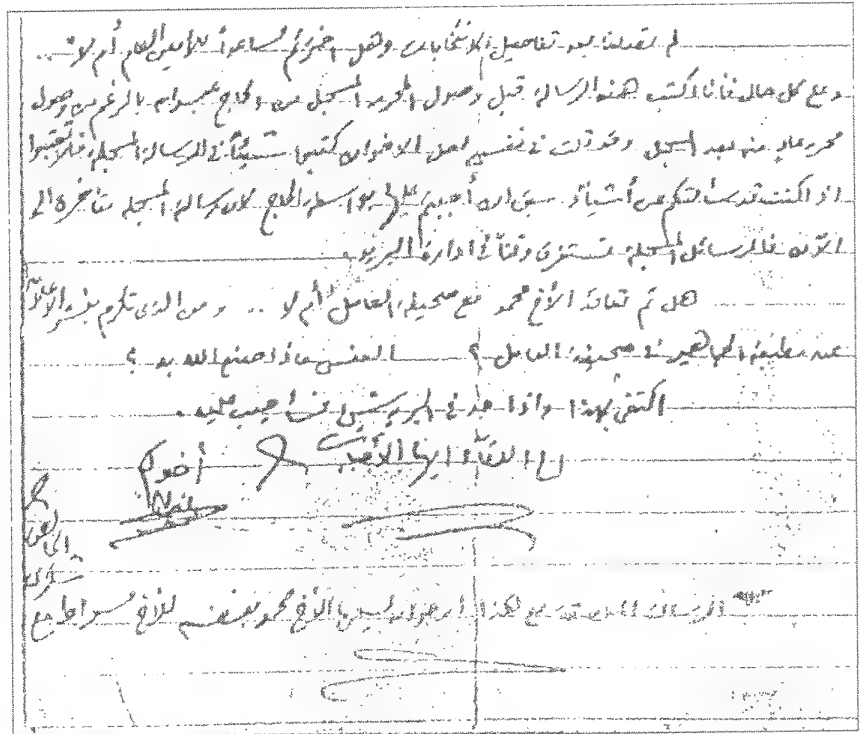 لم تصلنا بعد تفاصيل الانتخابات وهل اخترتم مساعداً للأمين العام أم لا ..
وعلى كل حال فأنا أكتب هذه الرسالة قبل وصول المحرر المسجل من الحاج بالرغم من وصول
محرر عادي منه بعد المسجل وقد قلت في نفسي لعل الاخوان كتبوا شيئاً في الرسالة المسجلة فلا تعجبوا
اذا كنت قد سألتكم عن أشياء سبق ان أجبتم عليها بواسطة الحاج لان رسالته المسجلة متأخرة الى
الآن فالرسائل المسجلة تستغرق وقتاً في ادارة البريد .
هل تم تعاقد الأخ محمد مع صحيفة العامل أم لا .. ومن الذي تكرم بنشر الاعلان
عن مطبعة الجماهير في صحيفة العامل ؟ العفش ماذا صنع الله به ؟
اكتفي بهذا واذا جد في البريد شيء فسأجيب عليه .
الى اللقاء ايها الأحباء
أخوكم
الرسالة المرفقة مع هذا أرجو ان يسلمها الأخ محمد بنفسه للأخ مع
شكري